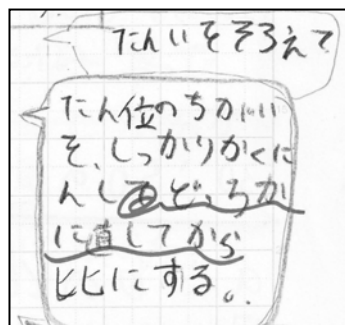 たんいをそろえて
たん位のちがい
を、しっかりかくに
んしてどちらか
に直してから
比にする。